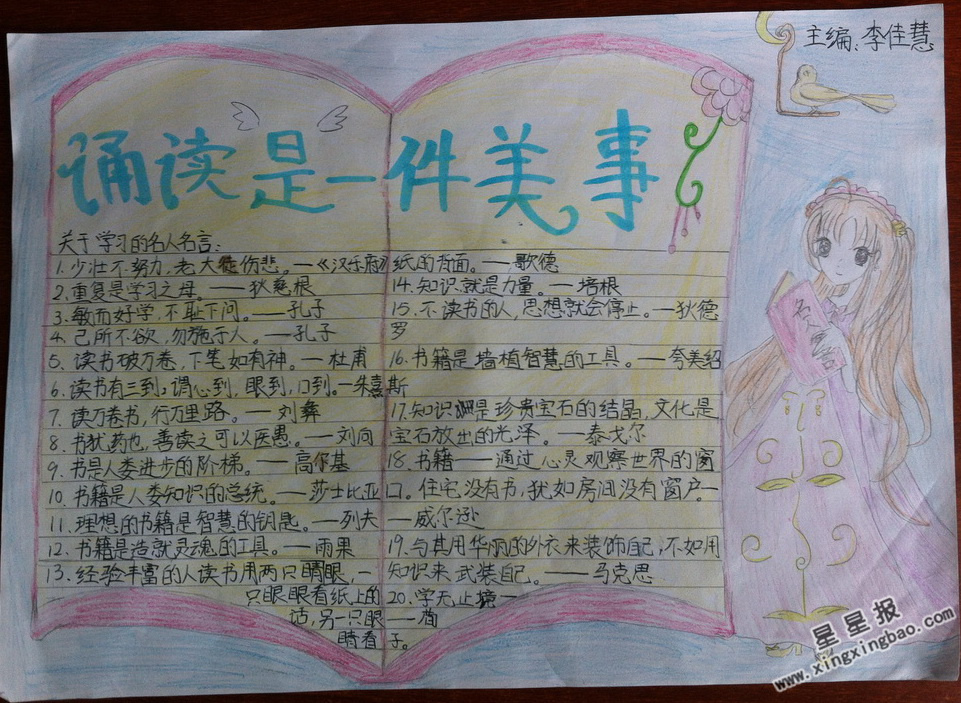 主编：李佳慧
诵读是一件美事
关于学习的名人名言：
1. 少壮不努力，老大徒伤悲。——《汉乐府》
2. 重复是学习之母。——狄慈根
3. 敏而好学，不耻下问。——孔子
4. 己所不欲，勿施于人。——孔子
5. 读书破万卷，下笔如有神。——杜甫
6. 读书有三到：谓心到，眼到，口到。—朱熹
7. 读万卷书，行万里路。——刘彝
8. 书犹药也，善读之可以医愚。——刘向
9. 书是人类进步的阶梯。——高尔基
10. 书籍是人类知识的总统。——莎士比亚
11. 理想的书籍是智慧的钥匙。——列夫
12. 书籍是造就灵魂的工具。——雨果
13. 经验丰富的人读书用两只睛眼，一
只眼眼看纸上的
话，另一只眼
睛看
纸的背面。——歌德
14. 知识就是力量。——培根
15. 不读书的人，思想就会停止。——狄德
罗
16. 书籍是墙植智慧的工具。——夸美绍
斯
17. 知识是珍贵宝石的结晶，文化是
宝石放出的光泽。——泰戈尔
18. 书籍——通过心灵观察世界的窗
口。住宅没有书，犹如房间没有窗户—
—威尔逊
19. 与其用华丽的外衣来装饰自己，不如用
知识来武装自己。——马克思
20. 学无止境——
——荀
子。
名人名言
星星报
www.xingxingbao.com